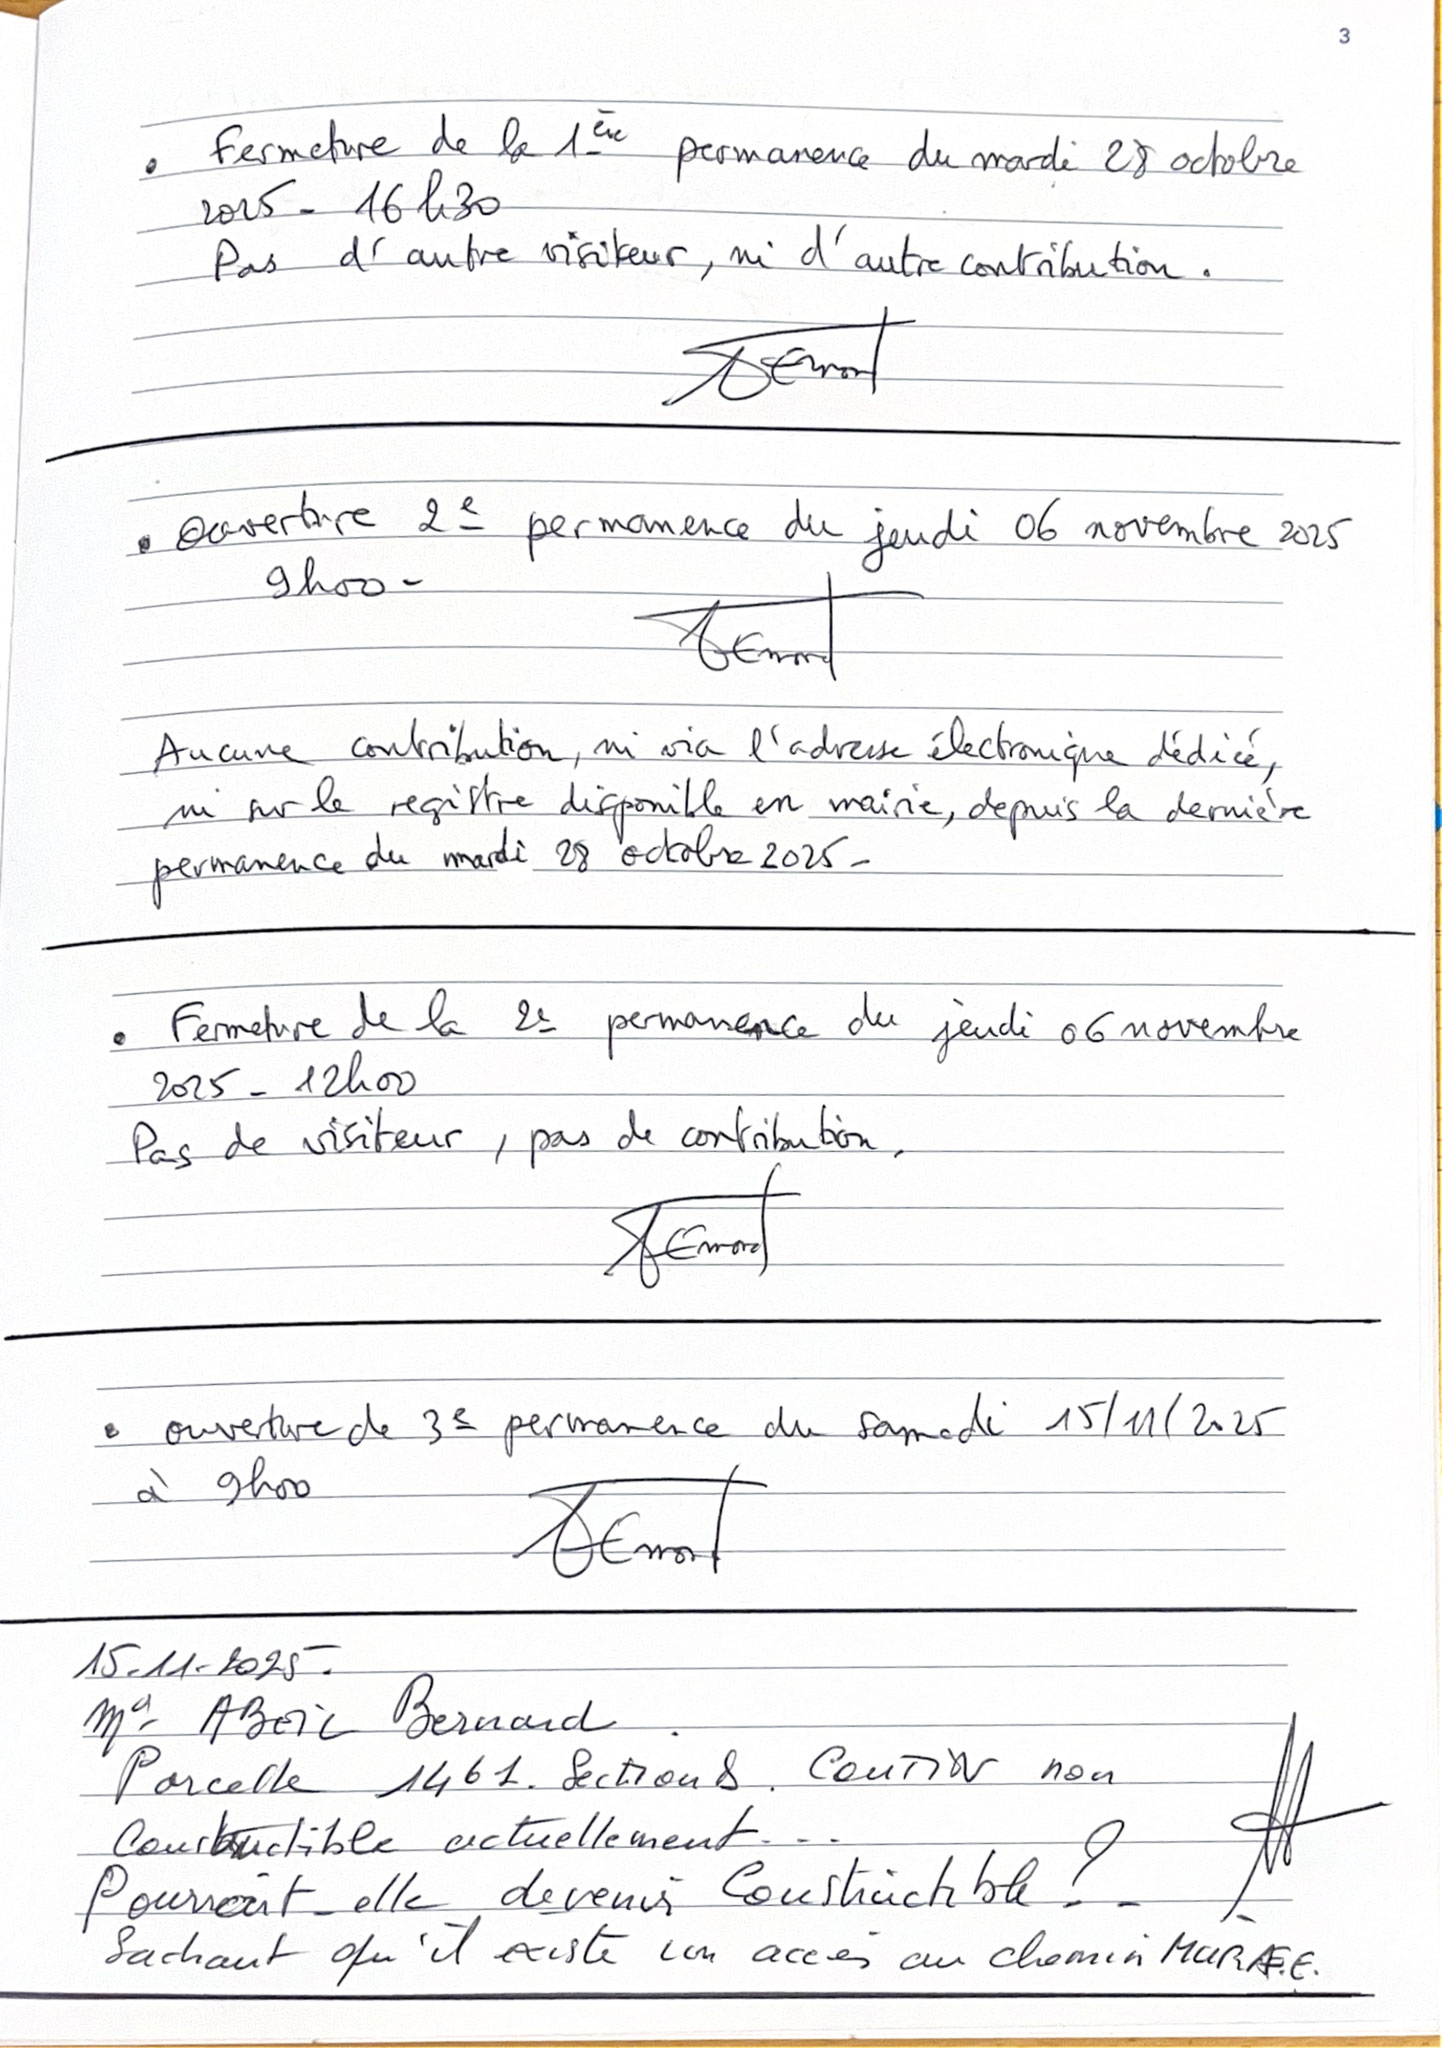 3
• Fermeture de la 1ère permanence du mardi 28 octobre
2025 - 16h30
Pas d'autre visiteur, ni d'autre contribution.
• Ouverture 2e permanence du jeudi 06 novembre 2025
9h00 -
Aucune contribution, ni via l'adresse électronique dédiée,
ni sur le registre disponible en mairie, depuis la dernière
permanence du mardi 28 octobre 2025 -
• Fermeture de la 2e permanence du jeudi 06 novembre
2025 - 12h00
Pas de visiteur, pas de contribution.
• ouverture de 3e permanence du samedi 15/11/2025
à 9h00
15-11-2025.
Bernard
Parcelle 1461. Section non
Constructible actuellement...
Pourrait-elle devenir Constructible ? -
Sachant qu'il existe un accès au chemin